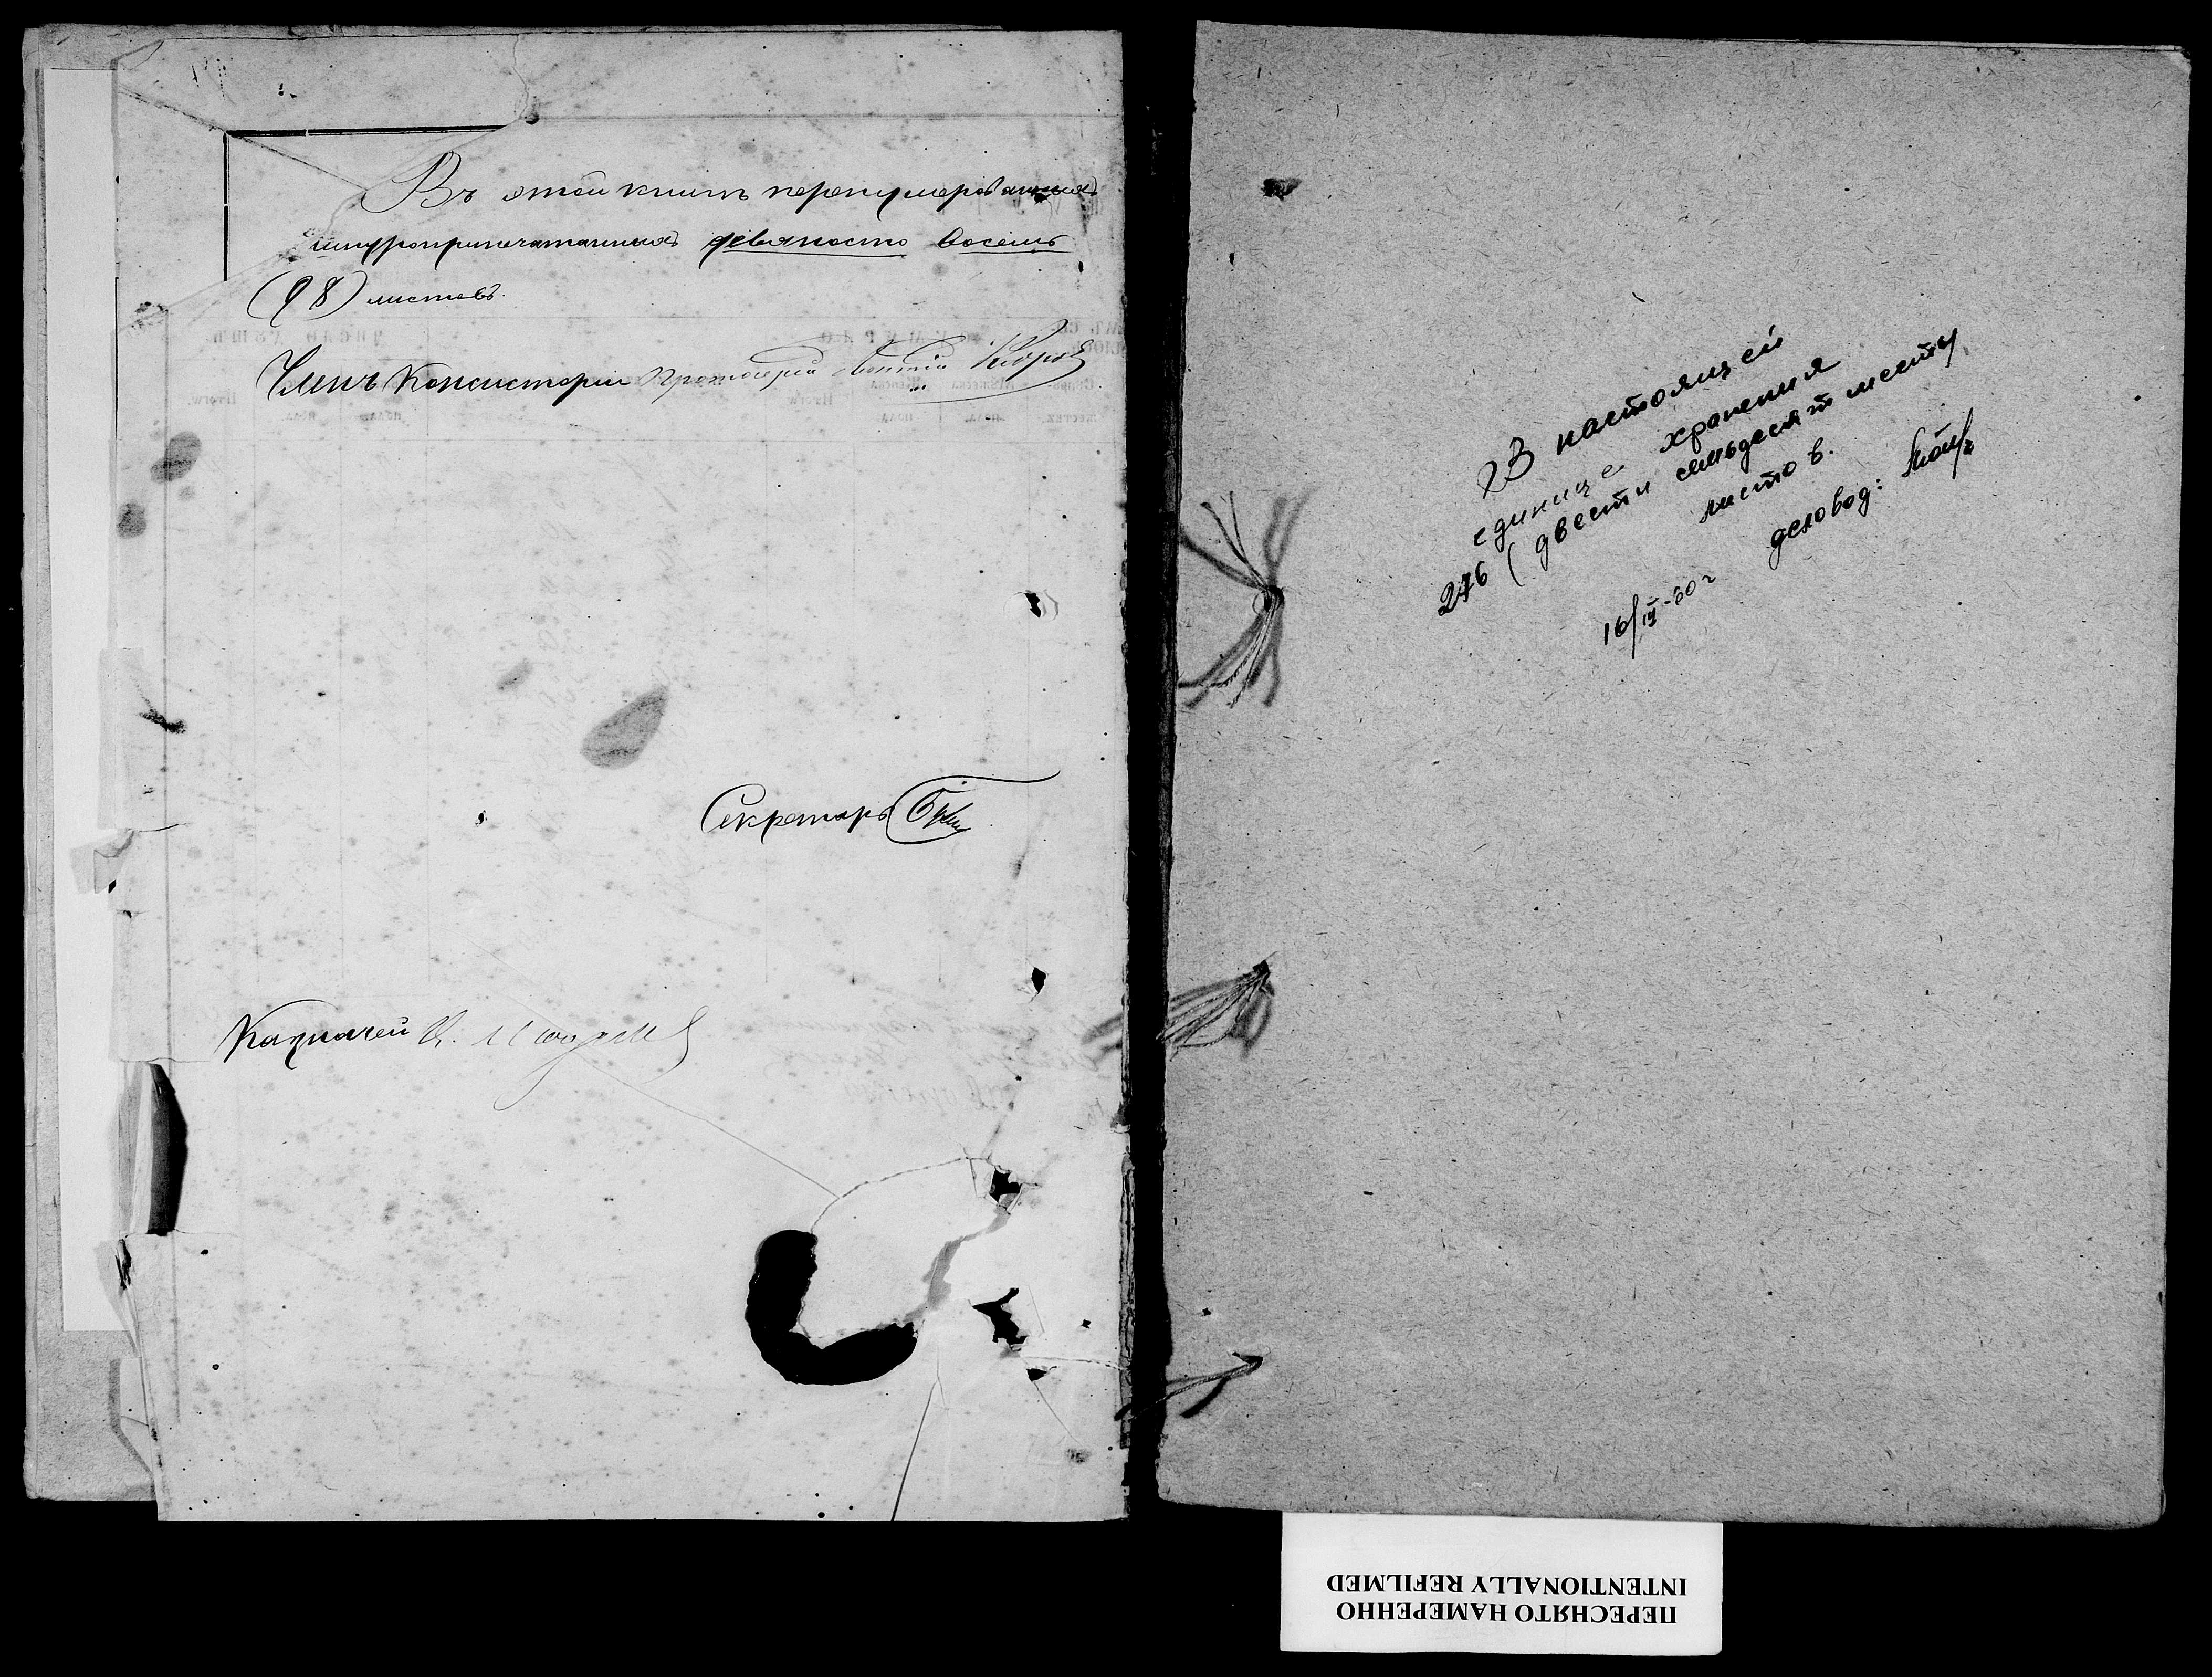 Въ этой книгѣ перенумерованныхъ
шнуроприпечатанныхъ девяносто восемь
(98) листовъ.
Членъ Консисторіи Протоіерей
Секретарь
Казначей
В настоящей
единице хранения
276 (двести семьдесят шесть)
листов.
16/IV-60 г деловод:
ПЕРЕСНЯТО НАМЕРЕННО
INTENTIONALLY REFILMED